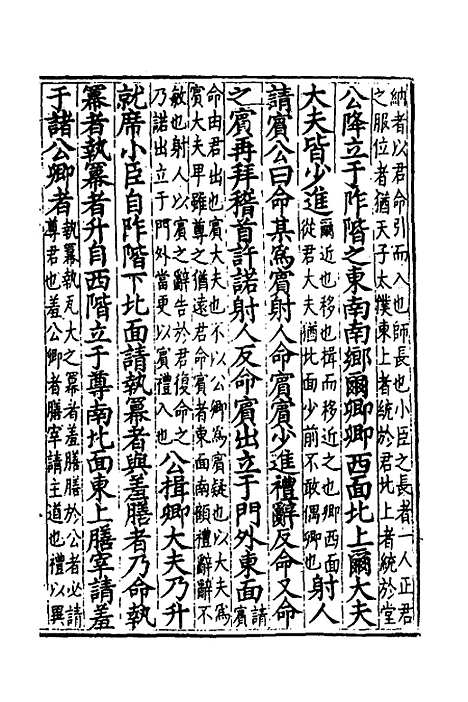 納者以君命引而入也師長也小臣之長者一人正君
之服位者猶天子太僕東上者統於君北上者統於堂
公降立于阼階之東南南鄉爾卿卿西面北上爾大夫
大夫皆少進爾近也移也揖而移近之也卿西面從君大夫猶北面少前不敢偶卿也射人
請賓公曰命某為賓射人命賓賓少進禮辭反命又命
之賓再拜稽首許諾射人反命賓出立于門外東面請賓
命由君出也賓大夫也不以公卿為賓疑也以大夫為
賓大夫卑雖尊之猶遠君命賓者東面南顧禮辭辭不
敏也射人以賓之辭告於君復命之乃諾出立于門外當更以賓禮入也公揖卿大夫乃升
就席小臣自阼階下北面請執冪者與羞膳者乃命執
冪者執冪者升自西階立于尊南北面東上膳宰請羞
于諸公卿者執冪執瓦大之冪者羞膳膳於公者必請尊君也羞公卿者膳宰請主道也禮以異